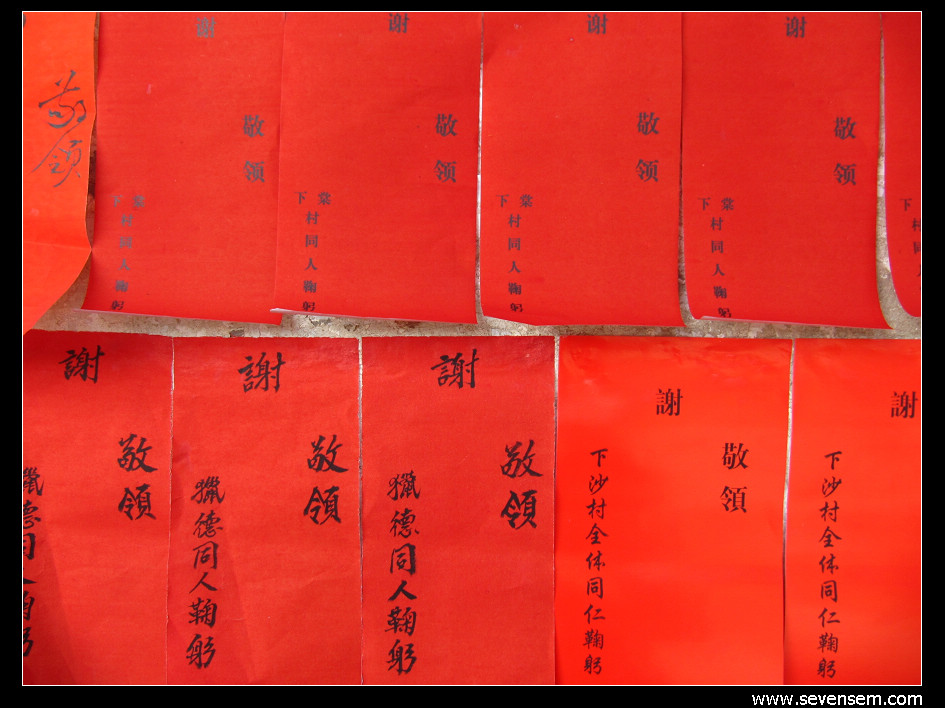 敬领
敬领
谢
棠下村同人鞠躬
敬领
谢
棠下村同人鞠躬
敬领
谢
棠下村同人鞠躬
敬领
谢
棠下村同人鞠躬
下村同人鞠躬
敬領
謝
獵德同人鞠躬
敬領
謝
獵德同人鞠躬
敬領
謝
獵德同人鞠躬
敬領
謝
下沙村全体同仁鞠躬
謝
下沙村全体同仁鞠躬
www.sevensem.com